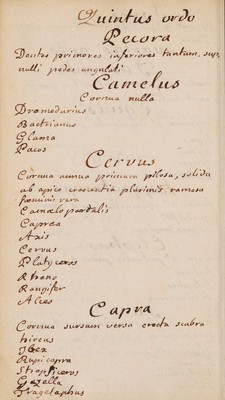 Quintus ordo
Pecora
Dentes primores inferiores tantum, supr.
nulli pedes ungulati
Camelus
Cornua nulla
Dromedarius
Bactrianus
Glama
Pacos
Cervus
Cornua annua primum pilosa, solida
ab apice crescentia plurimis ramosa
foeminis vera
Camelo pardalis
Caprea
Axis
Cervus
Platyceros
Rheno
Rangifer
Alces
Capra
Cornua sursum versa erecta scabra
hircus
Ibex
Rupicapra
Strepsiceros
Gazella
Tragelaphus